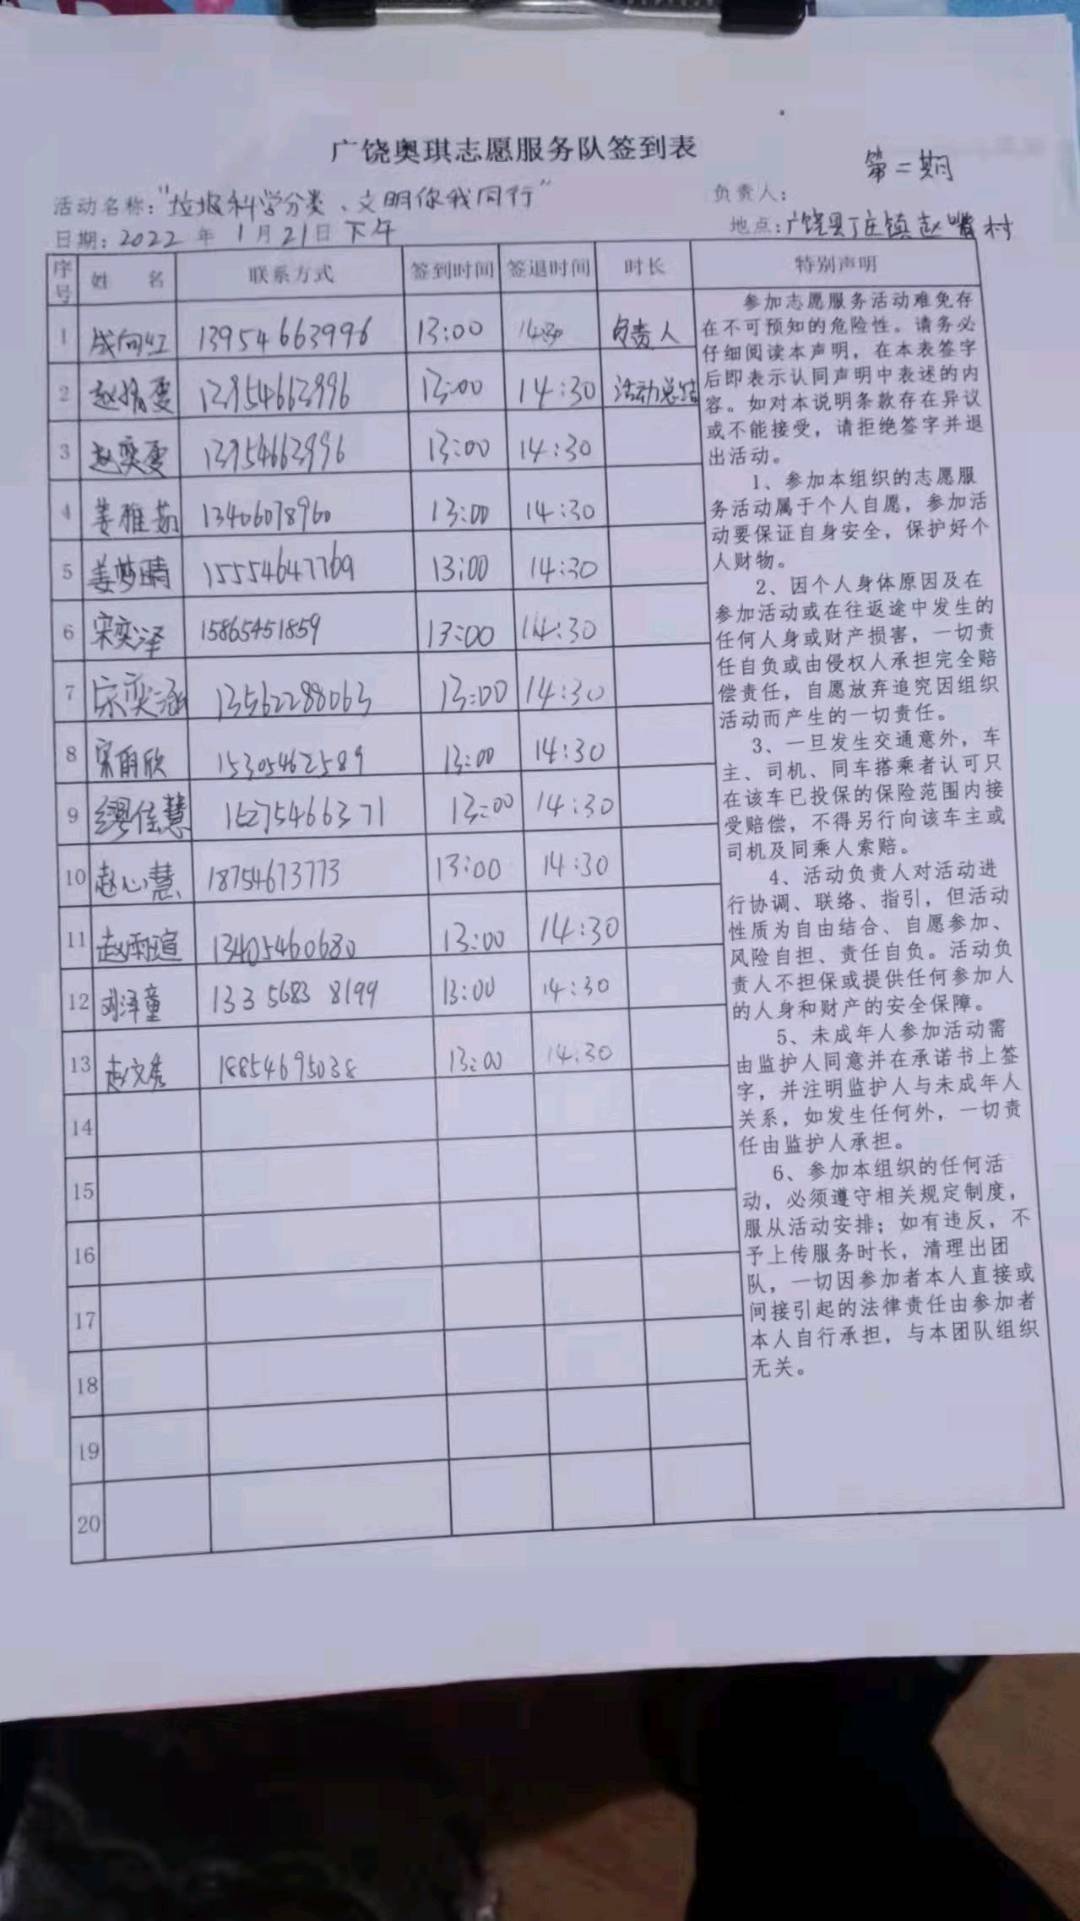 广饶奥琪志愿服务队签到表
第二期
活动名称:"垃圾科学分类、文明你我同行" 负责人:
日期:2022年1月21日下午 地点:广饶县丁庄镇赵嘴村
序号 姓名 联系方式 签到时间 签退时间 时长 特别声明
1 成向红 13954663996 13:00 14:30 负责人
2 赵婧雯 13954663996 13:00 14:30 活动总结
3 赵奕雯 13954663996 13:00 14:30
4 姜雅茹 13406078960 13:00 14:30
5 姜梦晴 15554647769 13:00 14:30
6 宋奕泽 15865451859 13:00 14:30
7 宋奕涵 13562288063 13:00 14:30
8 宋雨欣 15305462589 13:00 14:30
9 缪佳慧 13:00 14:30
10 赵心慧 18754673773 13:00 14:30
11 赵雨瑄 13405460680 13:00 14:30
12 刘泽童 133 5683 8199 13:00 14:30
13 赵文秀 18854695038 13:00 14:30
14
15
16
17
18
19
20
参加志愿服务活动难免存
在不可预知的危险性。请务必
仔细阅读本声明，在本表签字
后即表示认同声明中表述的内
容。如对本说明条款存在异议
或不能接受，请拒绝签字并退
出活动。
1、参加本组织的志愿服
务活动属于个人自愿，参加活
动要保证自身安全，保护好个
人财物。
2、因个人身体原因及在
参加活动或在往返途中发生的
任何人身或财产损害，一切责
任自负或由侵权人承担完全赔
偿责任，自愿放弃追究因组织
活动而产生的一切责任。
3、一旦发生交通意外，车
主、司机、同车搭乘者认可只
在该车已投保的保险范围内接
受赔偿，不得另行向该车主或
司机及同乘人索赔。
4、活动负责人对活动进
行协调、联络、指引，但活动
性质为自由结合、自愿参加、
风险自担、责任自负。活动负
责人不担保或提供任何参加人
的人身和财产的安全保障。
5、未成年人参加活动需
由监护人同意并在承诺书上签
字，并注明监护人与未成年人
关系，如发生任何外，一切责
任由监护人承担。
6、参加本组织的任何活
动，必须遵守相关规定制度，
服从活动安排；如有违反，不
予上传服务时长，清理出团
队，一切因参加者本人直接或
间接引起的法律责任由参加者
本人自行承担，与本团队组织
无关。